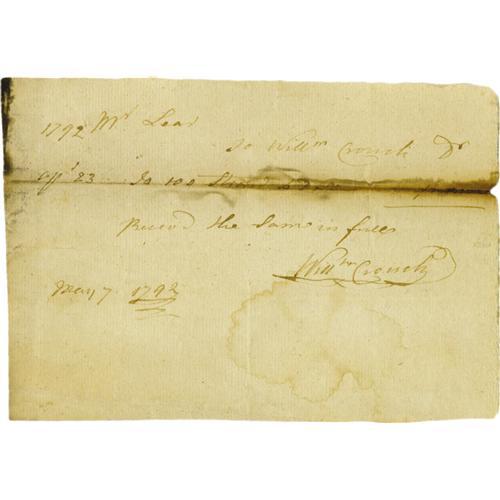 1792 Mr Lear
To Willm Crouch Dr
Apl 23 To 100
Receivd the Same in full
Willm Crouch
May 7 1792